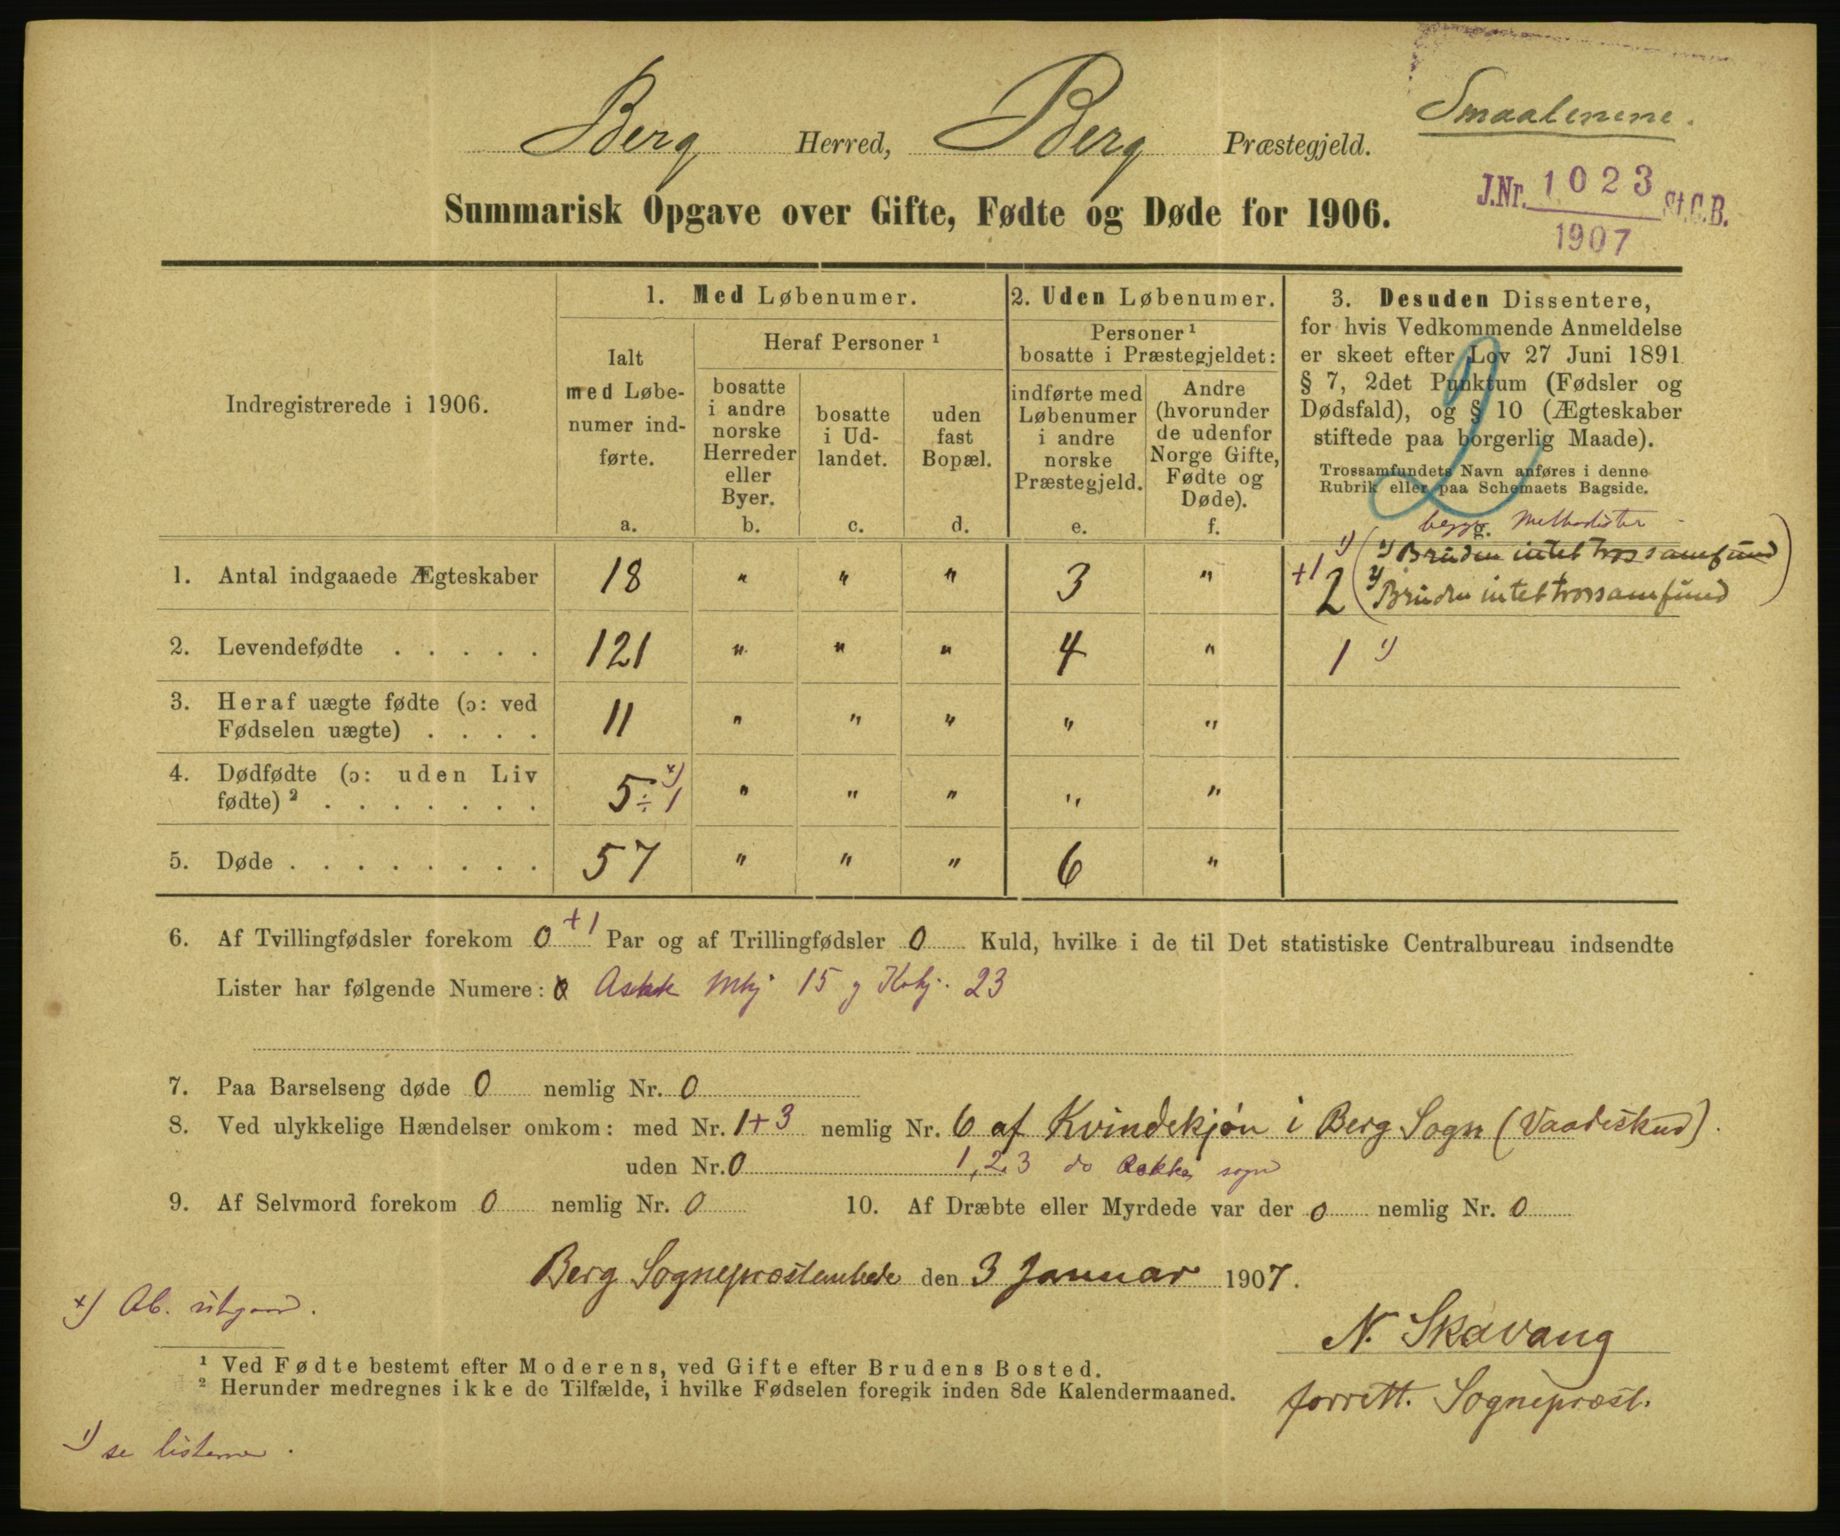 Smaalenene.
Berg Herred, Berg Præstegjeld.
J.Nr. 1023 St.C.B.
1907
Summarisk Opgave over Gifte, Fødte og Døde for 1906.
Indregistrerede i 1906.
1. Med Løbenumer.
Ialt
med Løbe-
numer ind-
førte.
a.
Heraf Personer ¹
bosatte
i andre
norske
Herreder
eller
Byer.
b.
bosatte
i Ud-
landet.
c.
uden
fast
Bopæl.
d.
2. Uden Løbenumer.
Personer ¹
bosatte i Præstegjeldet:
indførte med
Løbenumer
i andre
norske
Præstegjeld.
e.
Andre
(hvorunder
de udenfor
Norge Gifte,
Fødte og
Døde).
f.
3. Desuden Dissentere,
for hvis Vedkommende Anmeldelse
er skeet efter Lov 27 Juni 1891
§ 7, 2det Punktum (Fødsler og
Dødsfald), og § 10 (Ægteskaber
stiftede paa borgerlig Maade).
Trossamfundets Navn anføres i denne
Rubrik eller paa Schemaets Bagside.
2
g.
begge Methodister
1. Antal indgaaede Ægteskaber 18 " " " 3 " +1 ¹) 2 (¹) Bruden intet trossamfund
²) Bruden intet trossamfund)
2. Levendefødte . . . . . 121 " " " 4 " 1 ¹)
3. Heraf uægte fødte (ɔ: ved
Fødselen uægte) . . . . 11 " " " " "
4. Dødfødte (ɔ: uden Liv
fødte) ² . . . . . . . 5 ÷ 1 ˣ) " " " " "
5. Døde . . . . . . . . 57 " " " 6 "
6. Af Tvillingfødsler forekom 0 +1 Par og af Trillingfødsler 0 Kuld, hvilke i de til Det statistiske Centralbureau indsendte
Lister har følgende Numere: 0 Askk Mkj 15 g Kvkj. 23
7. Paa Barselseng døde 0 nemlig Nr. 0
8. Ved ulykkelige Hændelser omkom: med Nr. 1+3 nemlig Nr. 6 af Kvindekjøn i Berg Sogn (Vaadeskud).
uden Nr. 0 1, 2, 3 do Askke sogn
9. Af Selvmord forekom 0 nemlig Nr. 0 10. Af Dræbte eller Myrdede var der 0 nemlig Nr. 0
Berg Sognepræstembede den 3 Januar 1907.
ˣ) Ab. utgaar.
N. Skavang
forrett. Sognepræst.
¹ Ved Fødte bestemt efter Moderens, ved Gifte efter Brudens Bosted.
² Herunder medregnes ikke de Tilfælde, i hvilke Fødselen foregik inden 8de Kalendermaaned.
¹) se listerne.